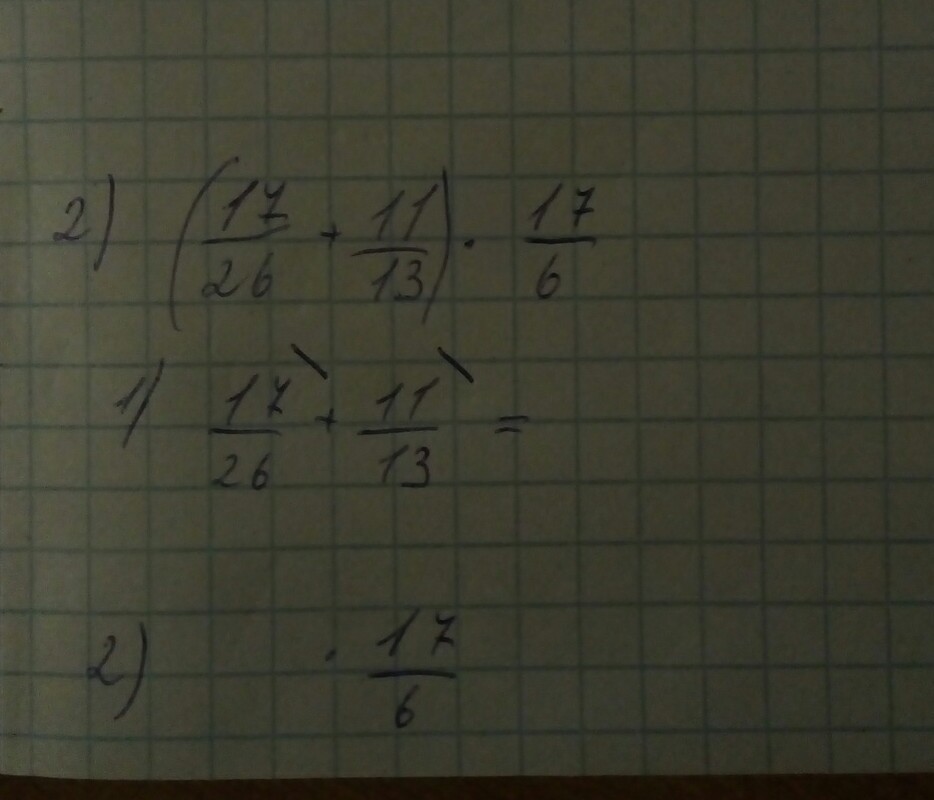 2) (17/26 + 11/13) · 17/6
1) 17/26 + 11/13 =
2) · 17/6